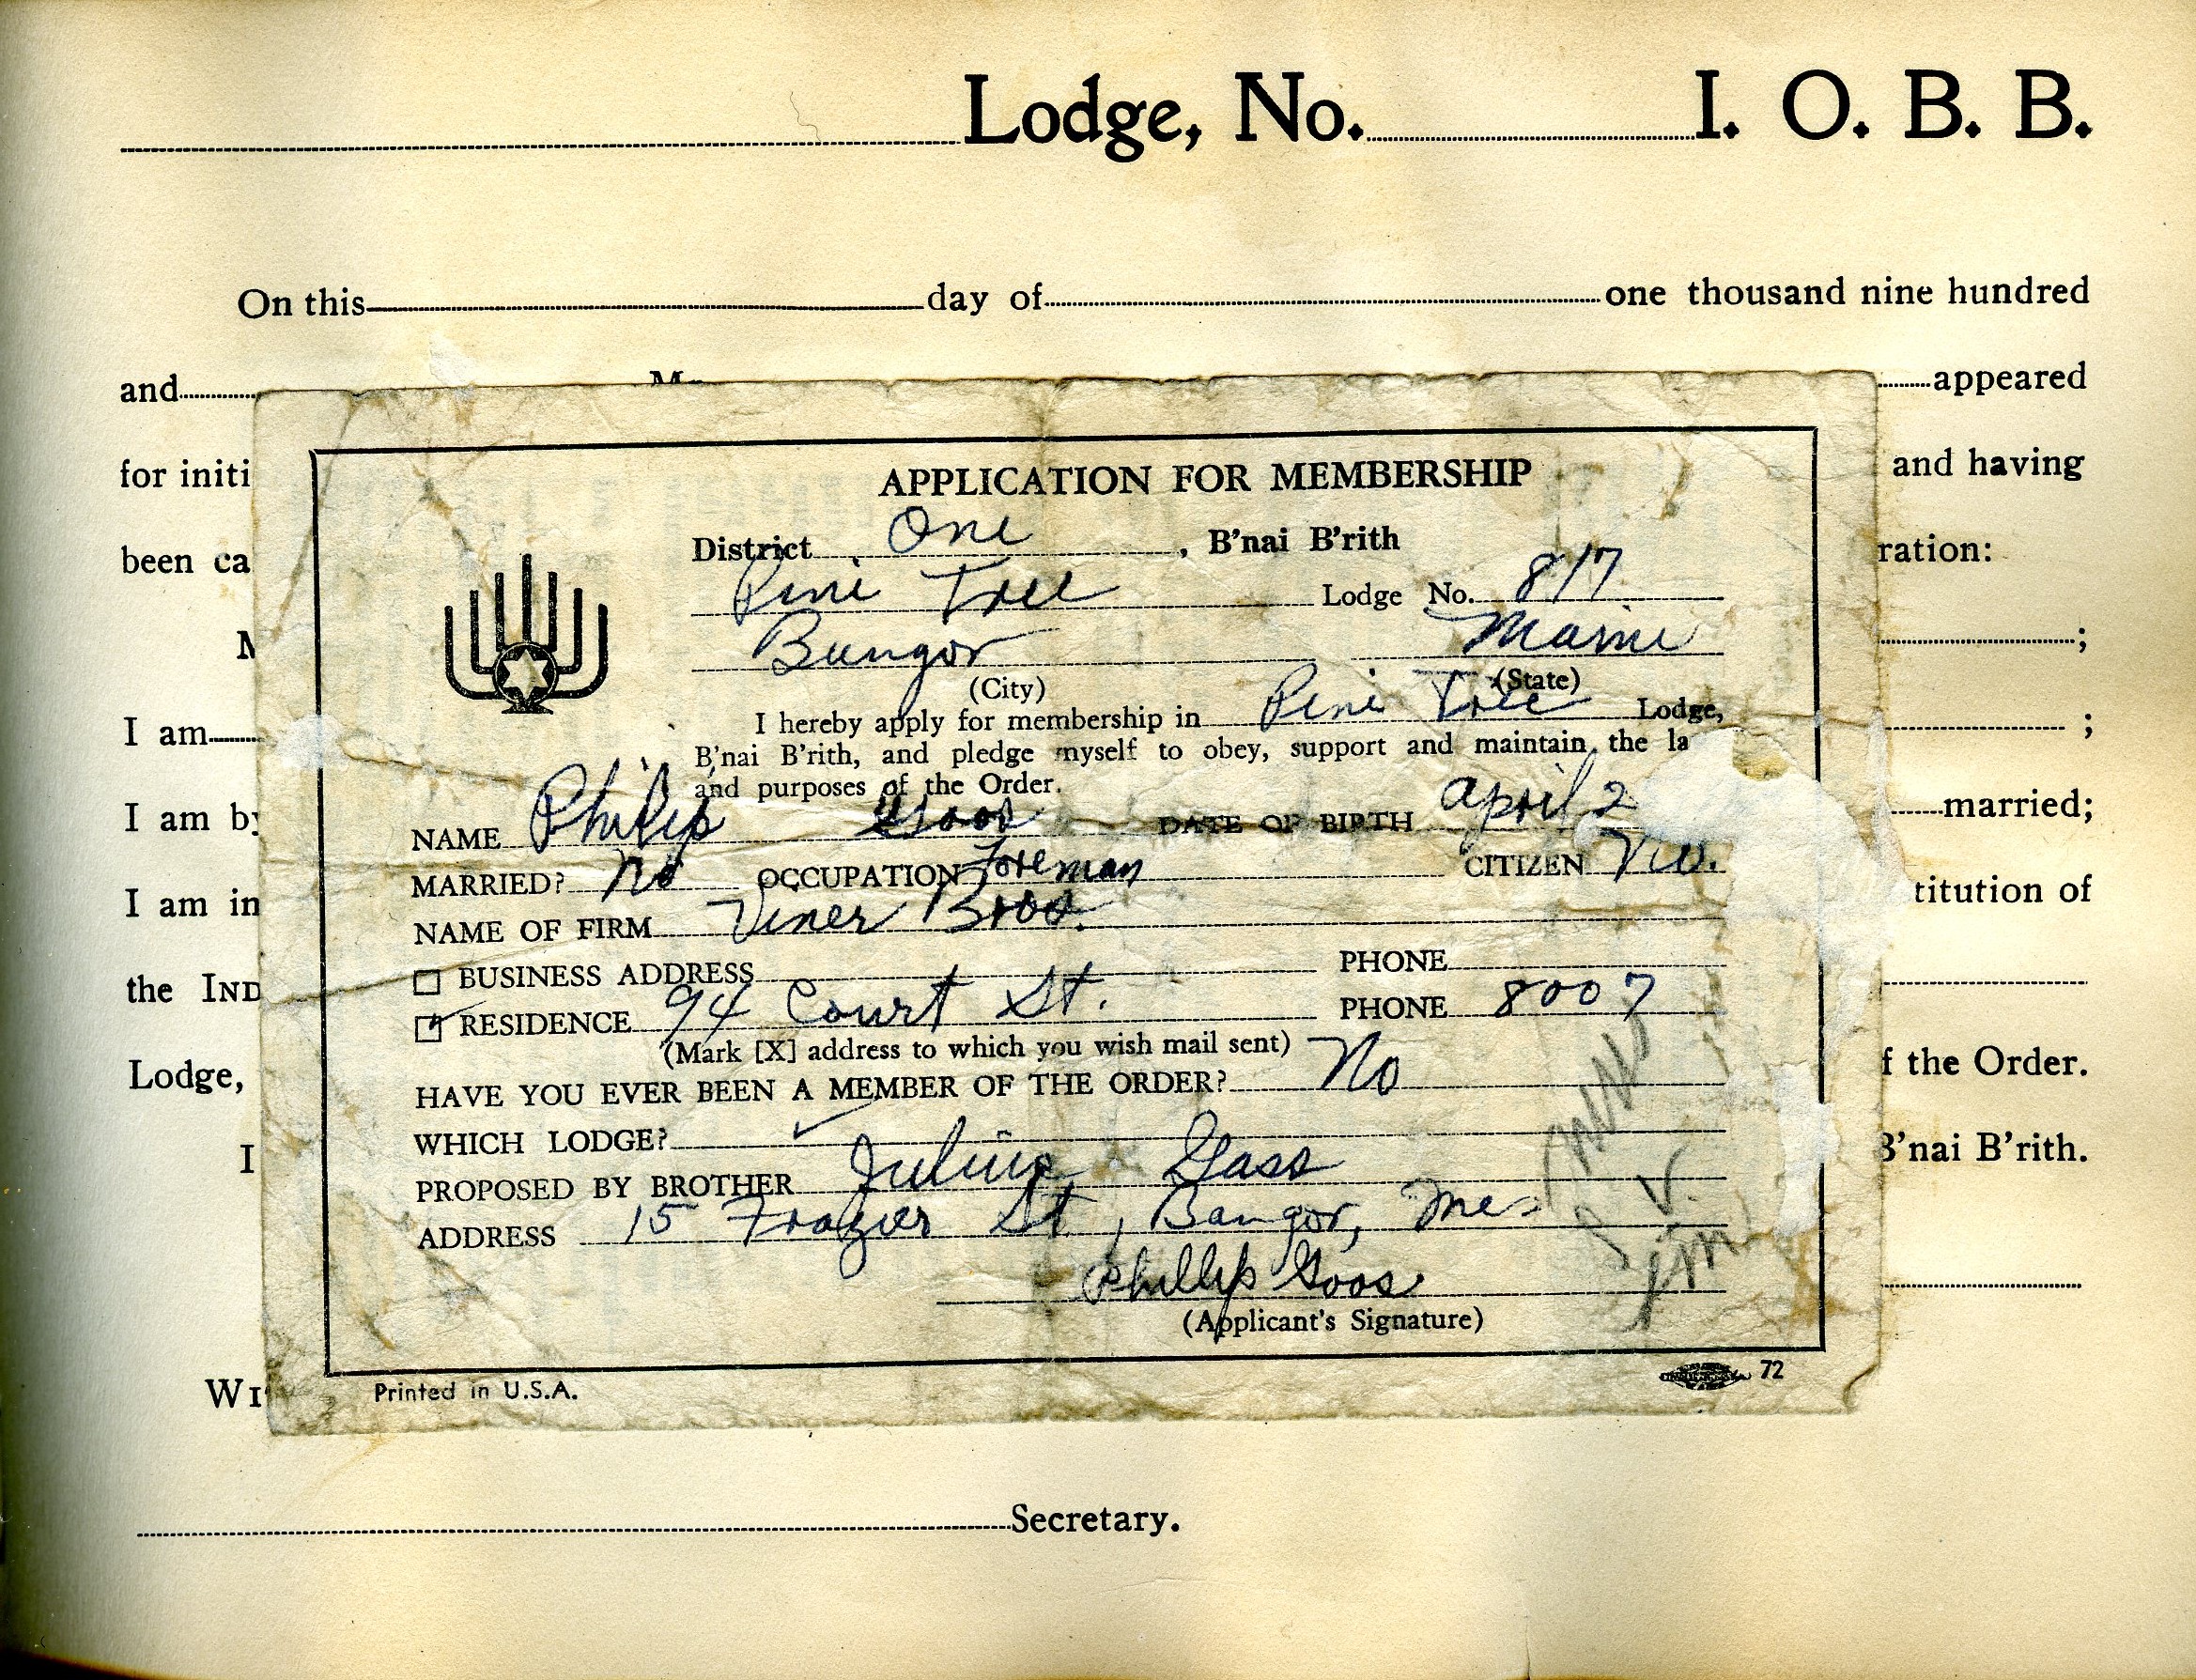 Lodge, No. I. O. B. B.
On this day of one thousand nine hundred
and appeared
for initi and having
been ca ration:
I am ;
I am by married;
I am in titution of
the IND
Lodge, f the Order.
I B'nai B'rith.
WI
Secretary.
APPLICATION FOR MEMBERSHIP
District One, B'nai B'rith
Pine Tree Lodge No. 817
Bangor Maine
(City) (State)
I hereby apply for membership in Pine Tree Lodge,
B'nai B'rith, and pledge myself to obey, support and maintain the la
and purposes of the Order.
NAME Philip Goos DATE OF BIRTH April 2
MARRIED? No OCCUPATION Foreman CITIZEN
NAME OF FIRM Viner Bros.
BUSINESS ADDRESS PHONE
RESIDENCE 94 Court St. PHONE 8007
(Mark [X] address to which you wish mail sent)
HAVE YOU EVER BEEN A MEMBER OF THE ORDER? No
WHICH LODGE?
PROPOSED BY BROTHER Julius Glass
ADDRESS 15 Frazier St, Bangor, Me.
Phillip Goos
(Applicant's Signature)
Printed in U.S.A. 72